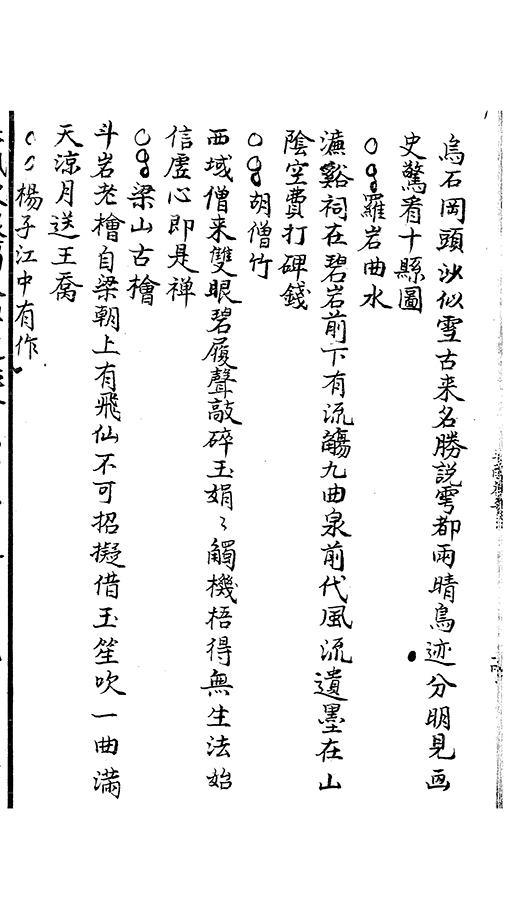 烏石岡頭沙似雪古来名勝説雩都雨晴鳥迹分明見画
史驚看十縣圖
羅岩曲水
濂谿祠在碧岩前下有流觴九曲泉前代風流遺墨在山
陰空費打碑錢
胡僧竹
西域僧来雙眼碧履聲敲碎玉娟〻觸機梧得無生法始
信虛心即是禅
梁山古檜
斗岩老檜自梁朝上有飛仙不可招擬借玉笙吹一曲满
天涼月送王喬
楊子江中有作